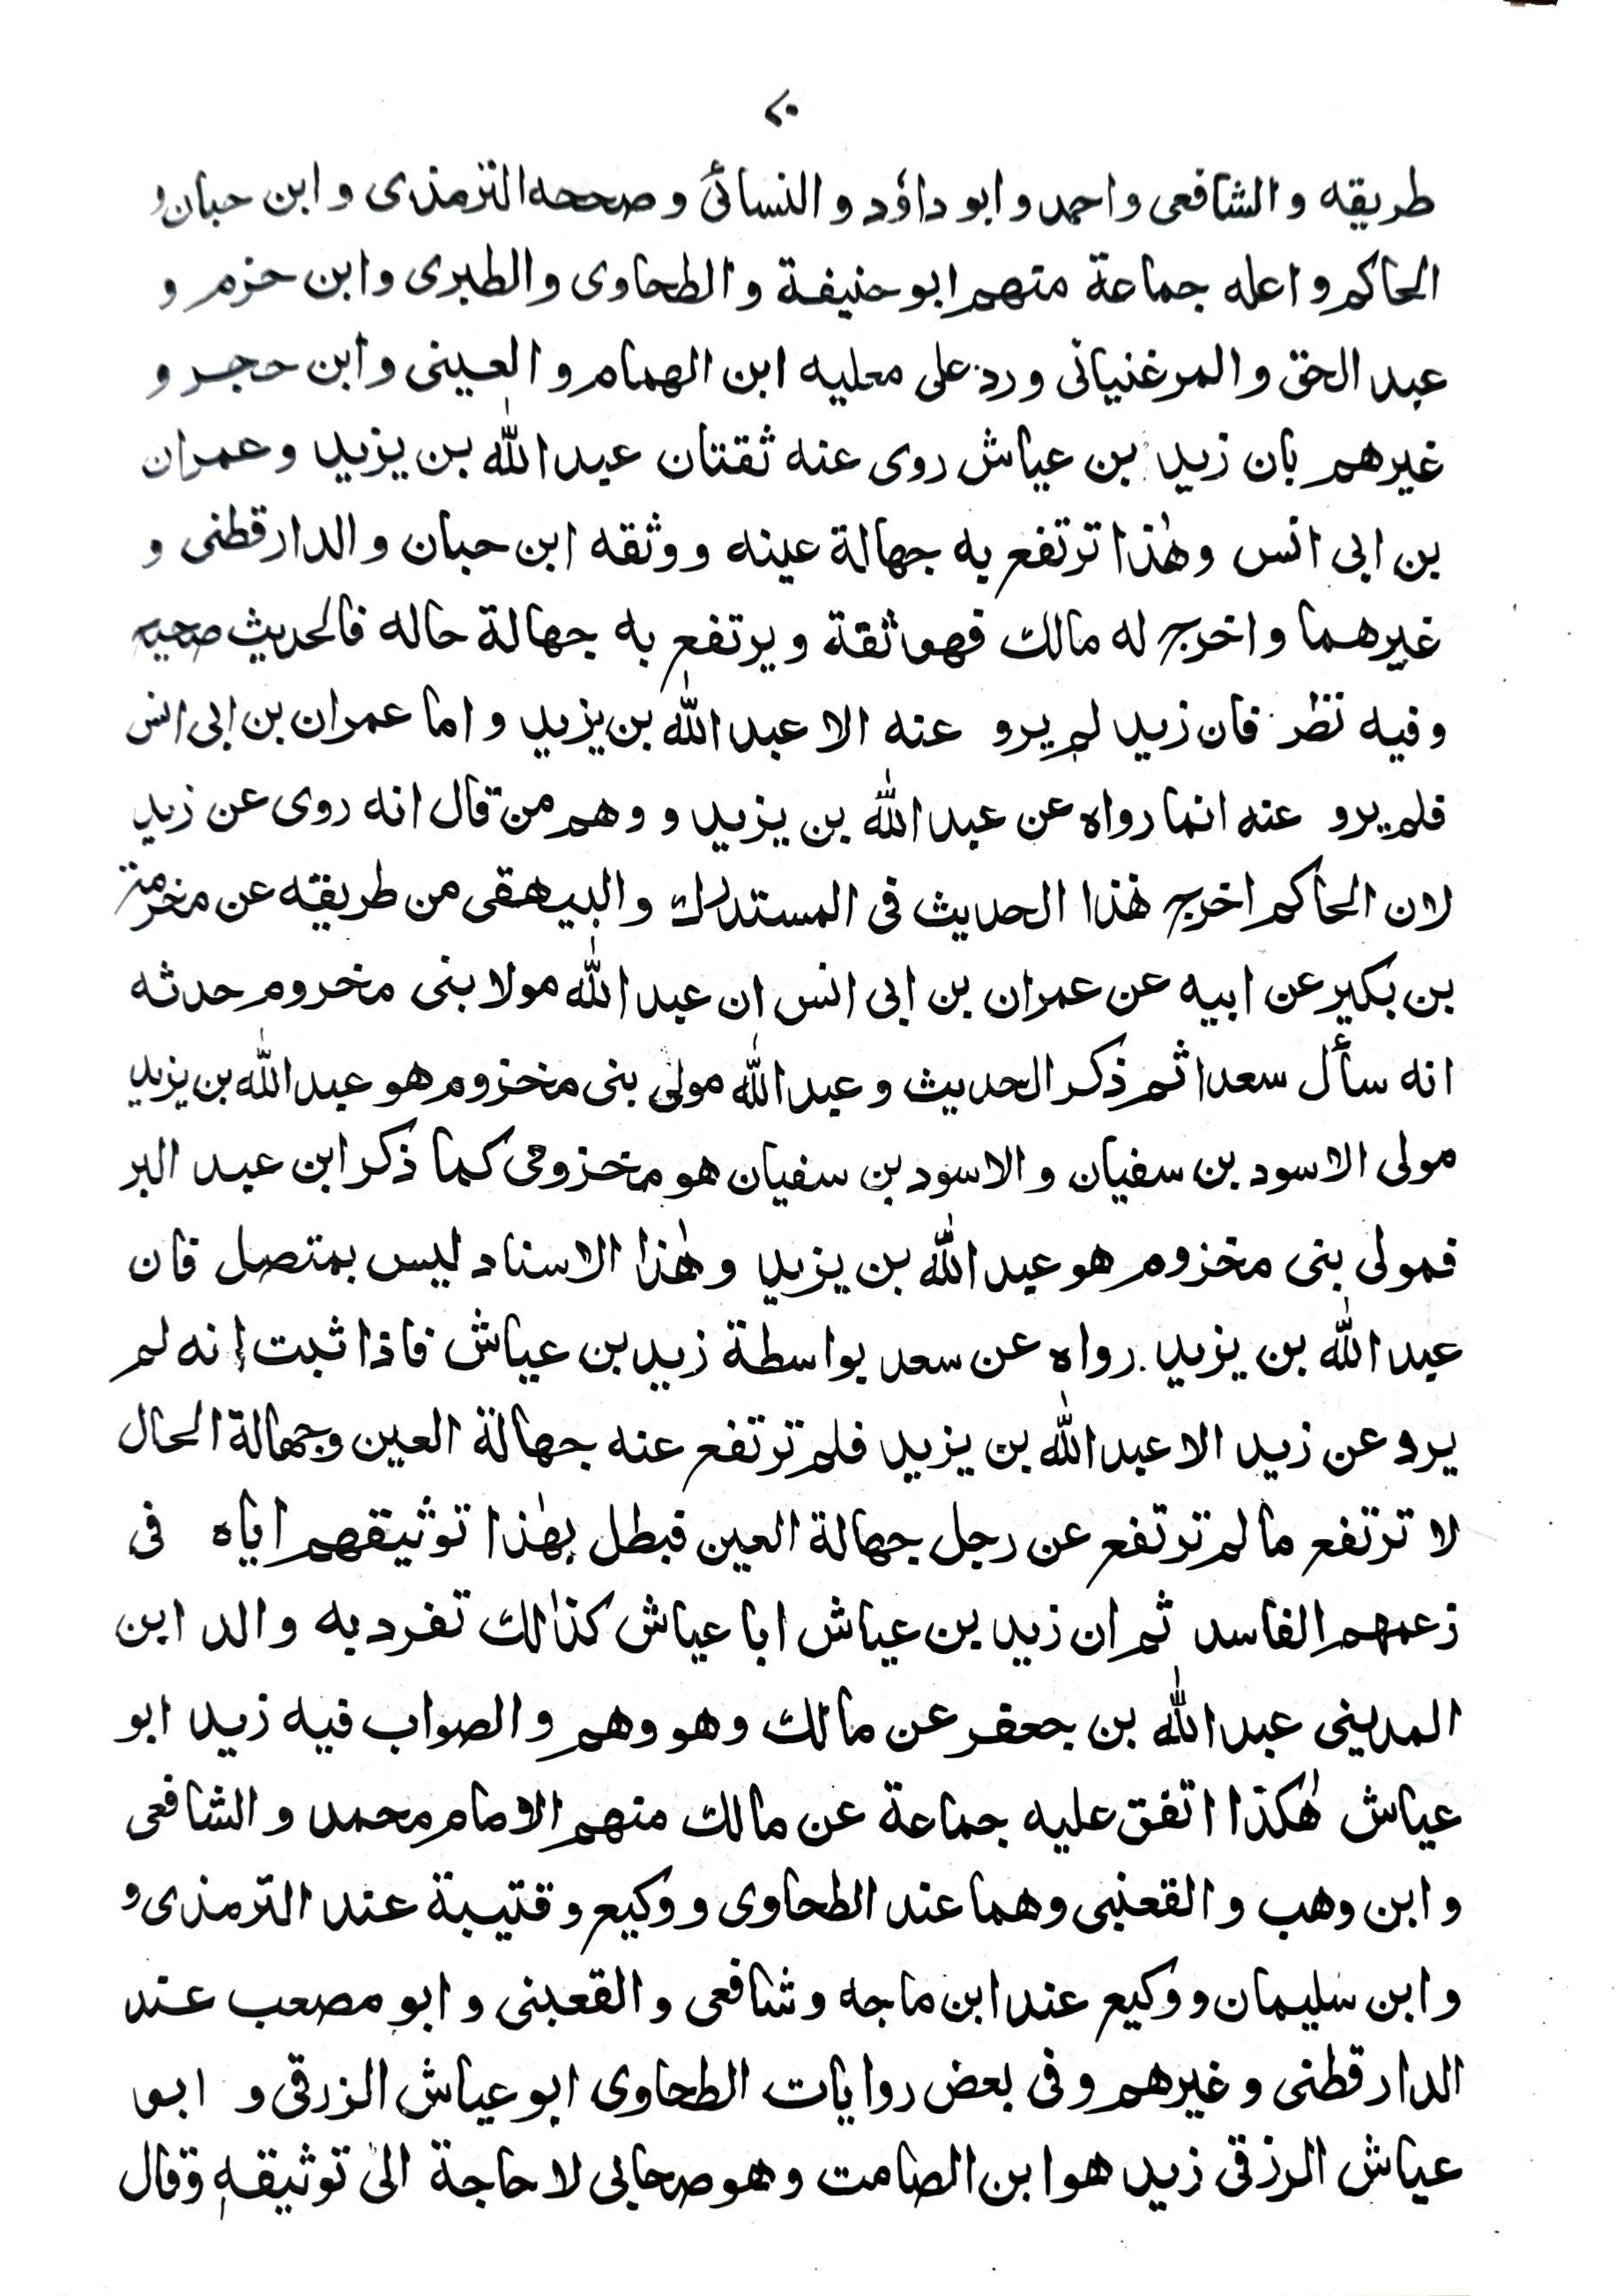 ٢٠
طريقه و الشافعى و احمد و ابو داؤد و النسائى و صححه الترمذى و ابن حبان و
الحاكم و اعله جماعة منهم ابو حنيفة و الطحاوى و الطبرى و ابن حزم و
عبد الحق و المرغنيانى و رد على معليه ابن الهمام و العينى و ابن حجر و
غيرهم بان زيد بن عياش روى عنه ثقتان عبد الله بن يزيد و عمران
بن ابى انس و هٰذا ترتفع به جهالة عينه و وثقه ابن حبان و الدارقطنى و
غيرهما و اخرج له مالك فهو ثقة و يرتفع به جهالة حاله فالحديث صحيح
و فيه نظر فان زيد لم يرو عنه الا عبد الله بن يزيد و اما عمران بن ابى انس
فلم يرو عنه انما رواه عن عبد الله بن يزيد و وهم من قال انه روى عن زيد
لان الحاكم اخرج هٰذا الحديث فى المستدرك و البيهقى من طريقه عن مخرمة
بن بكير عن ابيه عن عمران بن ابى انس ان عبد الله مولا بنى مخروم حدثه
انه سأل سعدا ثم ذكر الحديث و عبد الله مولى بنى مخزوم هو عبد الله بن يزيد
مولى الاسود بن سفيان و الاسود بن سفيان هو مخزومى كما ذكر ابن عبد البر
فمولى بنى مخزوم هو عبد الله بن يزيد و هٰذا الاسناد ليس بمتصل فان
عبد الله بن يزيد رواه عن سعد بواسطة زيد بن عياش فاذا ثبت انه لم
يرو عن زيد الا عبد الله بن يزيد فلم ترتفع عنه جهالة العين وجهالة الحال
لا ترتفع ما لم ترتفع عن رجل جهالة العين فبطل بهٰذا توثيقهم اياه فى
زعمهم الفاسد ثم ان زيد بن عياش ابا عياش كذالك تفرد به والد ابن
المدينى عبد الله بن جعفر عن مالك و هو وهم و الصواب فيه زيد ابو
عياش هٰكذا اتفق عليه جماعة عن مالك منهم الامام محمد و الشافعى
و ابن وهب و القعنبى وهما عند الطحاوى و وكيع و قتيبة عند الترمذى و
و ابن سليمان و وكيع عند ابن ماجه و شافعى و القعبنى و ابو مصعب عند
الدارقطنى و غيرهم و فى بعض روايات الطحاوى ابو عياش الزرقى و ابو
عياش الرزقى زيد هو ابن الصامت و هو صحابى لا حاجة الى توثيقه وقال